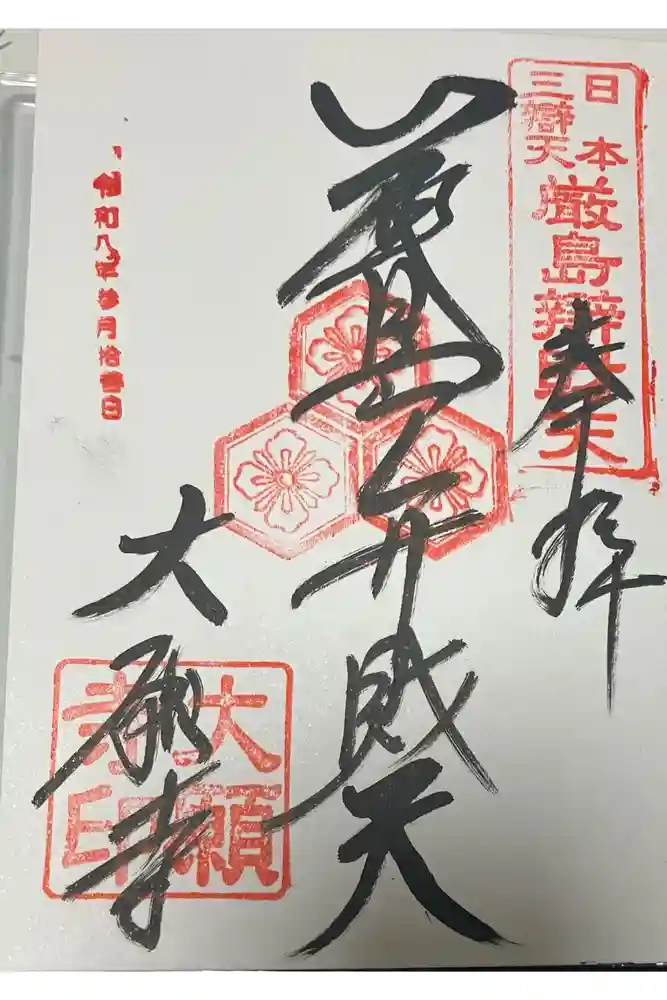 日本
三辯天
厳島辯財天
奉拝
厳島弁財天
大願寺
大願
寺印
令和八年参月拾壹日